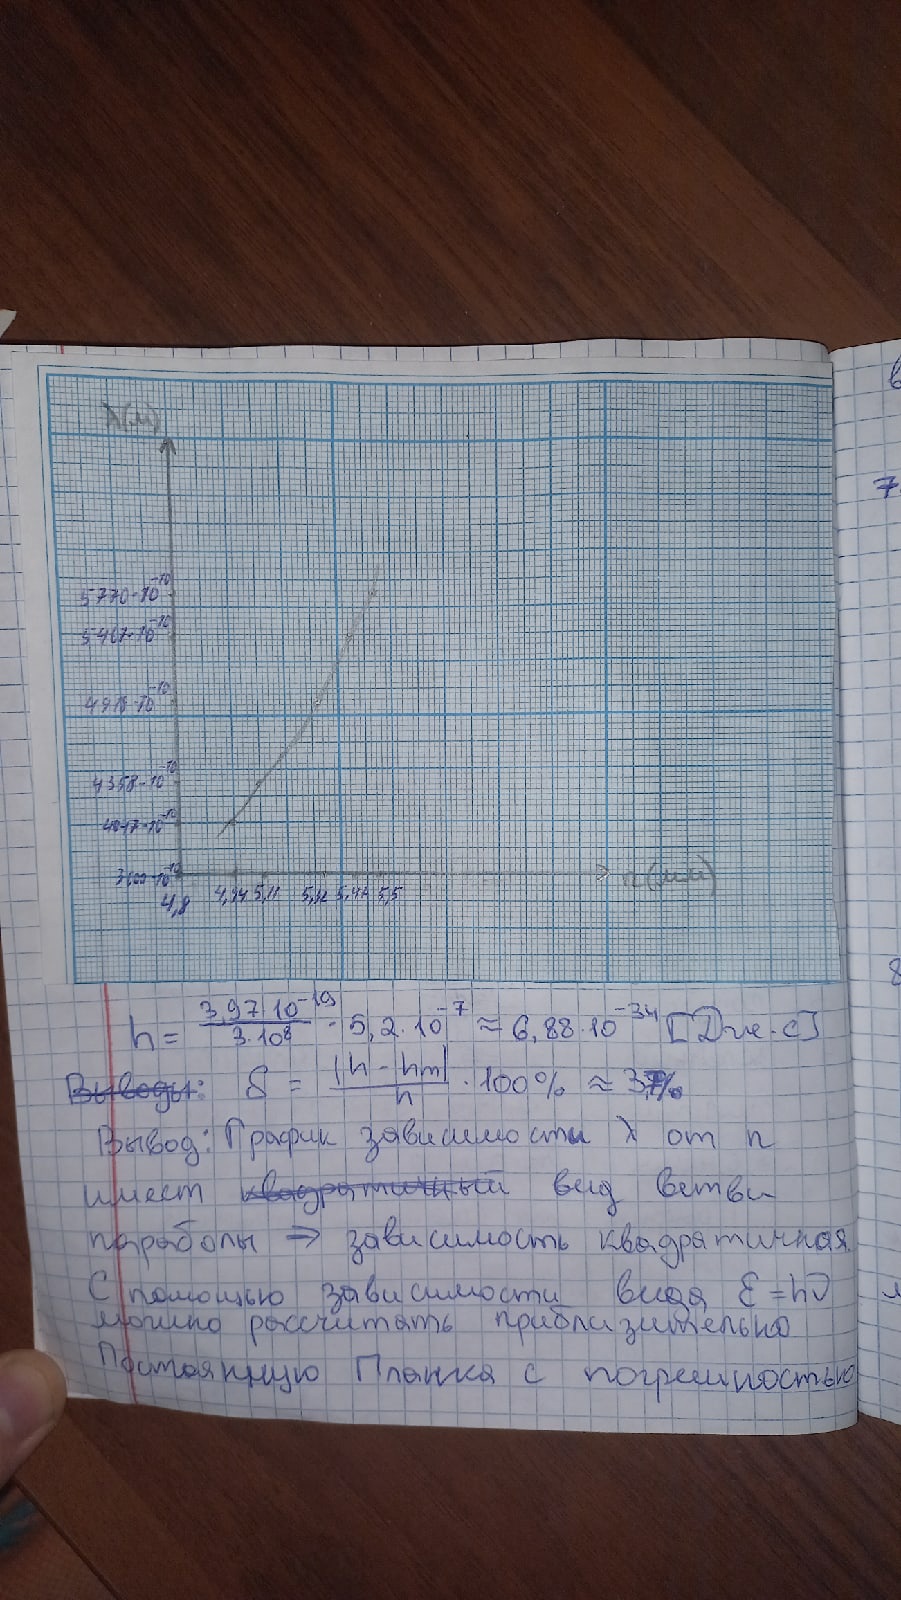 λ(м)
5770·10⁻¹⁰
5461·10⁻¹⁰
4916·10⁻¹⁰
4358·10⁻¹⁰
4047·10⁻¹⁰
4,8 4,94 5,11 5,32 5,42 5,5
n(мм)
h = 3,97·10⁻¹⁹ / 3·10⁸ · 5,2·10⁻⁷ ≈ 6,88·10⁻³⁴ [Дж·с]
Выводы: δ = |h - hт| / h · 100% ≈ 3,7%
Вывод: График зависимости λ от n
имеет квадратичный вид ветви
параболы ⇒ зависимость квадратичная
С помощью зависимости вида ε=hν
можно рассчитать приблизительно
Постоянную Планка с погрешностью
7.
8